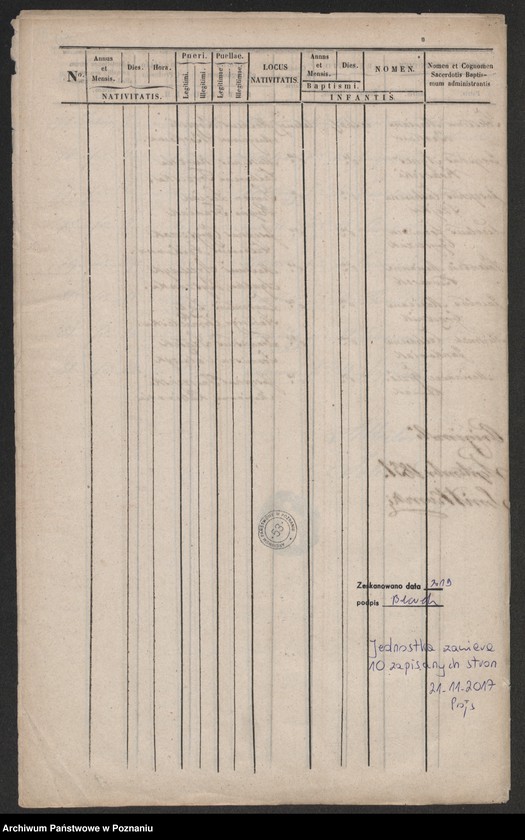 Nº.
Annus et Mensis.
Dies.
Hora.
NATIVITATIS.
Pueri.
Legitimi.
Illegitimi.
Puellae.
Legitimae.
Illegitimae.
LOCUS
NATIVITATIS
Annus et Mensis.
Dies.
Baptismi.
NOMEN.
INFANTIS.
Nomen et Cognomen
Sacerdotis Baptis-
mum administrantis
53
Zeskanowano data 2019
podpis
Jednostka zawiera
10 zapisanych stron
21-11-2017
Archiwum Państwowe w Poznaniu